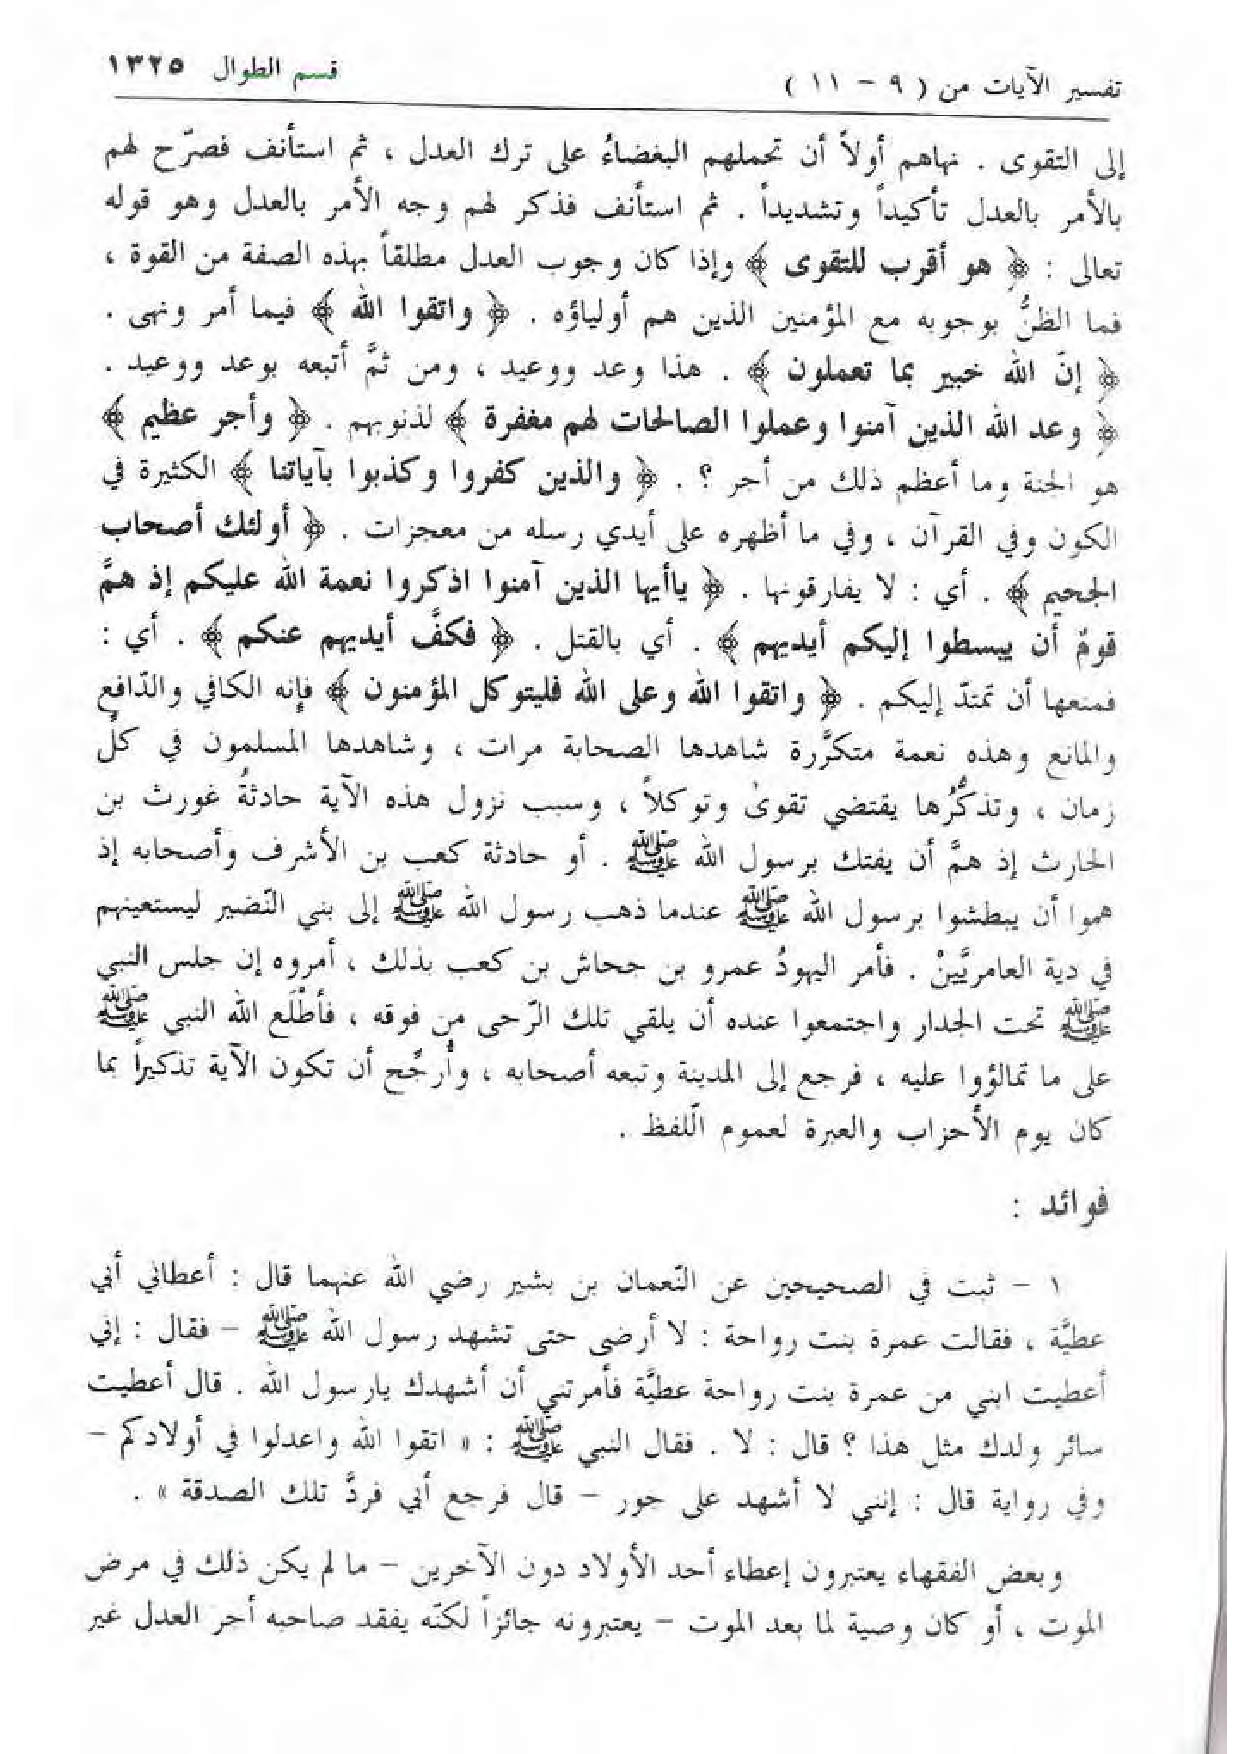 تفسير الآيات من ( ٩ – ١١ ) قسم الطوال ١٣٢٥
إلى التقوى . نهاهم أولاً أن تحملهم البغضاءُ على ترك العدل ، ثم استأنف فصرّح لهم
بالأمر بالعدل تأكيداً وتشديداً . ثم استأنف فذكر لهم وجه الأمر بالعدل وهو قوله
تعالى : ﴿ هو أقرب للتقوى ﴾ وإذا كان وجوب العدل مطلقاً بهذه الصفة من القوة ،
فما الظنُّ بوجوبه مع المؤمنين الذين هم أولياؤه . ﴿ واتقوا الله ﴾ فيما أمر ونهى .
﴿ إنّ الله خبير بما تعملون ﴾ . هذا وعد ووعيد ، ومن ثمَّ أتبعه بوعد ووعيد .
﴿ وعد الله الذين آمنوا وعملوا الصالحات لهم مغفرة ﴾ لذنوبهم . ﴿ وأجر عظيم ﴾
هو الجنة وما أعظم ذلك من أجر ؟ . ﴿ والذين كفروا وكذبوا بآياتنا ﴾ الكثيرة في
الكون وفي القرآن ، وفي ما أظهره على أيدي رسله من معجزات . ﴿ أولئك أصحاب
الجحيم ﴾ . أي : لا يفارقونها . ﴿ ياأيها الذين آمنوا اذكروا نعمة الله عليكم إذ همَّ
قومٌ أن يبسطوا إليكم أيديهم ﴾ . أي بالقتل . ﴿ فكفَّ أيديهم عنكم ﴾ . أي :
فمنعها أن تمتدّ إليكم . ﴿ واتقوا الله وعلى الله فليتوكل المؤمنون ﴾ فإنه الكافي والدّافع
والمانع وهذه نعمة متكرَّرة شاهدها الصحابة مرات ، وشاهدها المسلمون في كلِّ
زمان ، وتذكُّرها يقتضي تقوىٰ وتوكلاً ، وسبب نزول هذه الآية حادثةُ غورث بن
الحارث إذ همَّ أن يفتك برسول الله ﷺ . أو حادثة كعب بن الأشرف وأصحابه إذ
هموا أن يبطشوا برسول الله ﷺ عندما ذهب رسول الله ﷺ إلى بني النّضير ليستعينهم
في دية العامريَّيْن . فأمر اليهودُ عمرو بن جحاش بن كعب بذلك ، أمروه إن جلس النبي
ﷺ تحت الجدار واجتمعوا عنده أن يلقي تلك الرّحى من فوقه ، فأطْلَع الله النبي ﷺ
على ما تمالؤوا عليه ، فرجع إلى المدينة وتبعه أصحابه ، وأُرجِّح أن تكون الآية تذكيراً بما
كان يوم الأحزاب والعبرة لعموم الّلفظ .
فوائد :
١ – ثبت في الصحيحين عن النّعمان بن بشير رضي الله عنهما قال : أعطاني أبي
عطيَّة ، فقالت عمرة بنت رواحة : لا أرضى حتى تشهد رسول الله ﷺ – فقال : إني
أعطيت ابني من عمرة بنت رواحة عطيَّة فأمرتني أن أشهدك يارسول الله . قال أعطيت
سائر ولدك مثل هذا ؟ قال : لا . فقال النبي ﷺ : « اتقوا الله واعدلوا في أولادكم –
وفي رواية قال : إنني لا أشهد على جور – قال فرجع أبي فردَّ تلك الصدقة » .
وبعض الفقهاء يعتبرون إعطاء أحد الأولاد دون الآخرين – ما لم يكن ذلك في مرض
الموت ، أو كان وصية لما بعد الموت – يعتبرونه جائزاً لكنّه يفقد صاحبه أجر العدل غير